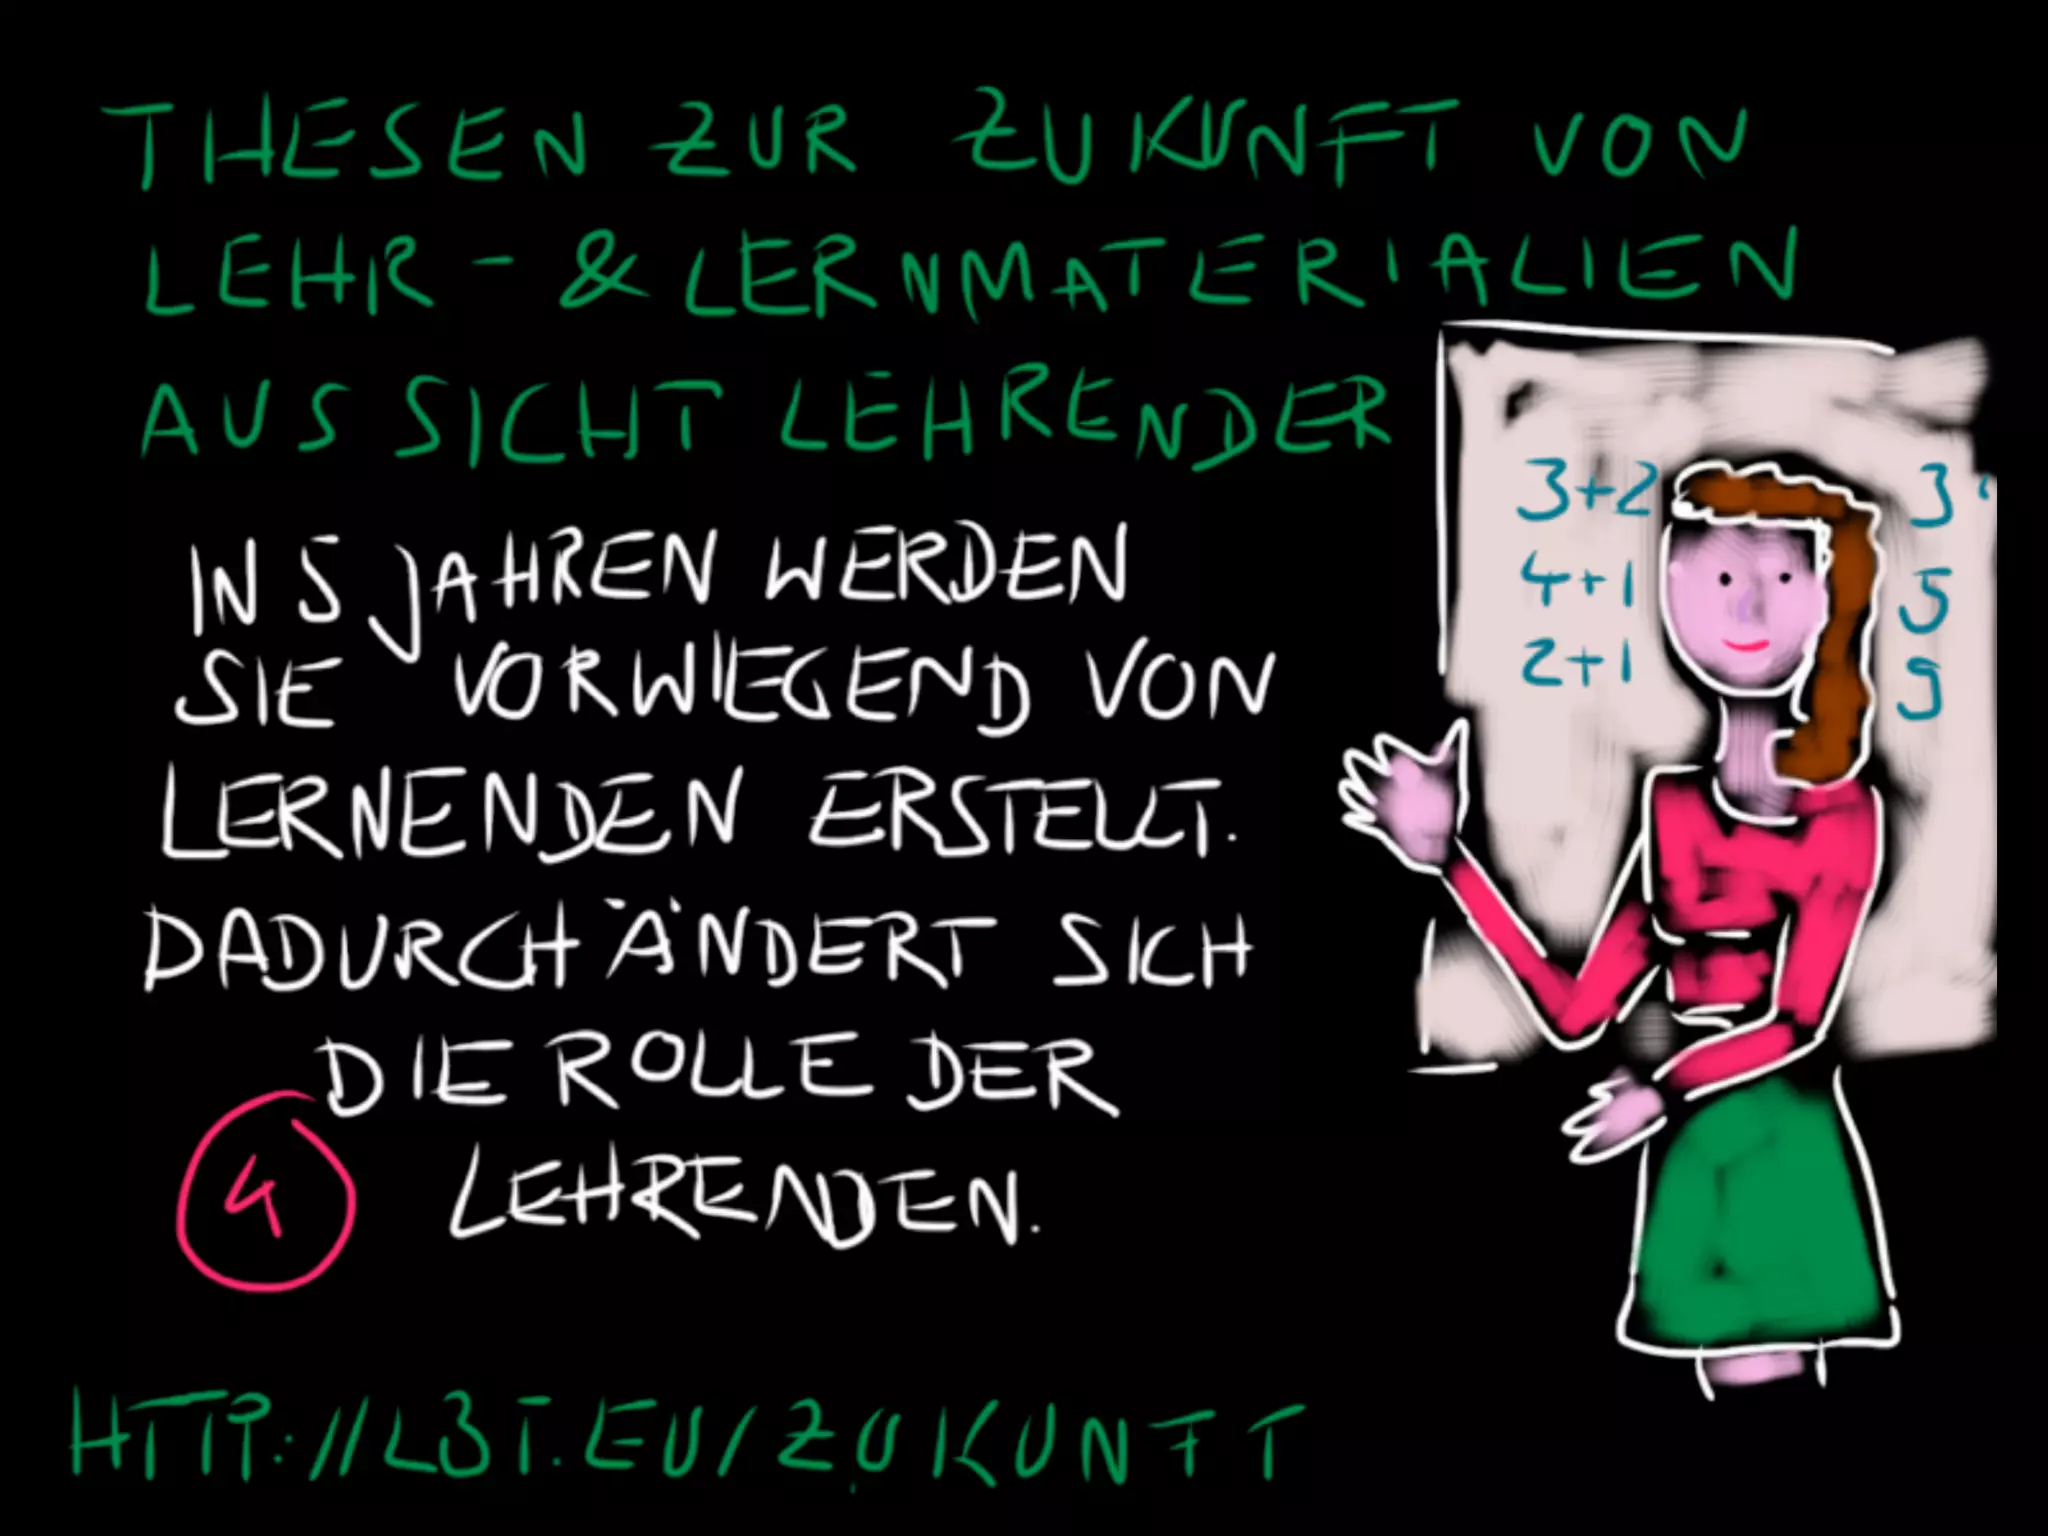 THESEN ZUR ZUKUNFT VON
LEHR- & LERNMATERIALIEN
AUS SICHT LEHRENDER
IN 5 JAHREN WERDEN
SIE VORWIEGEND VON
LERNENDEN ERSTELLT.
DADURCH ÄNDERT SICH
DIE ROLLE DER
LEHRENDEN.
4
3+2 3
4+1 5
2+1 9
HTTP://L3T.EU/ZUKUNFT